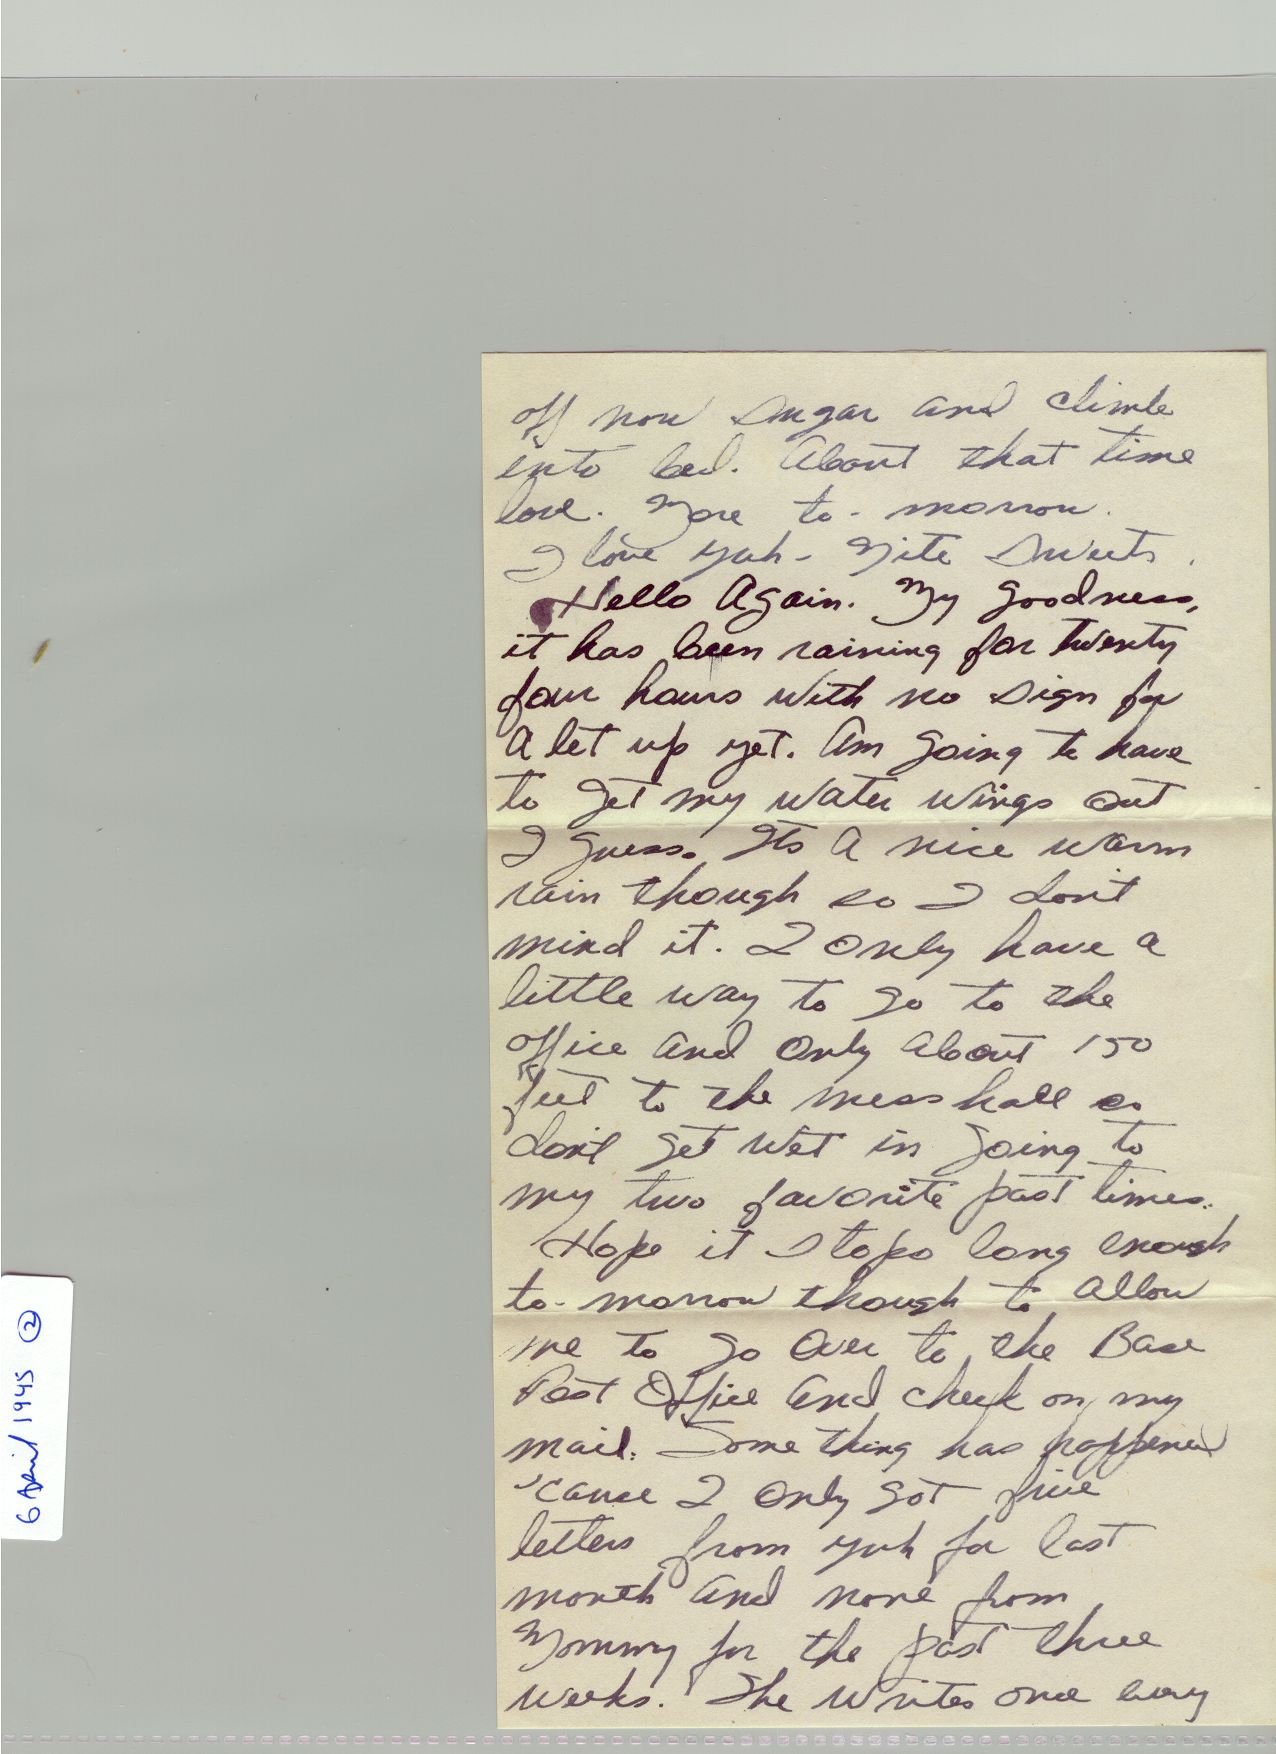 off now Sugar and climb
into bed. About that time
love. More to-morrow.
I love yuh - Nite Sweets.
Hello Again. My goodness,
it has been raining for twenty
four hours with no sign for
a let up yet. Am going to have
to get my water wings out
I guess. Its a nice warm
rain though so I don't
mind it. I only have a
little way to go to the
office and only about 150
feet to the mess hall so
don't get wet in going to
my two favorite past times.
Hope it stops long enough
to-morrow though to allow
me to go over to the Base
Post Office and check on my
mail. Something has happened
'cause I only got five
letters from yuh for last
month and none from
Mommy for the past three
weeks. She writes once every
6 April 1945 2